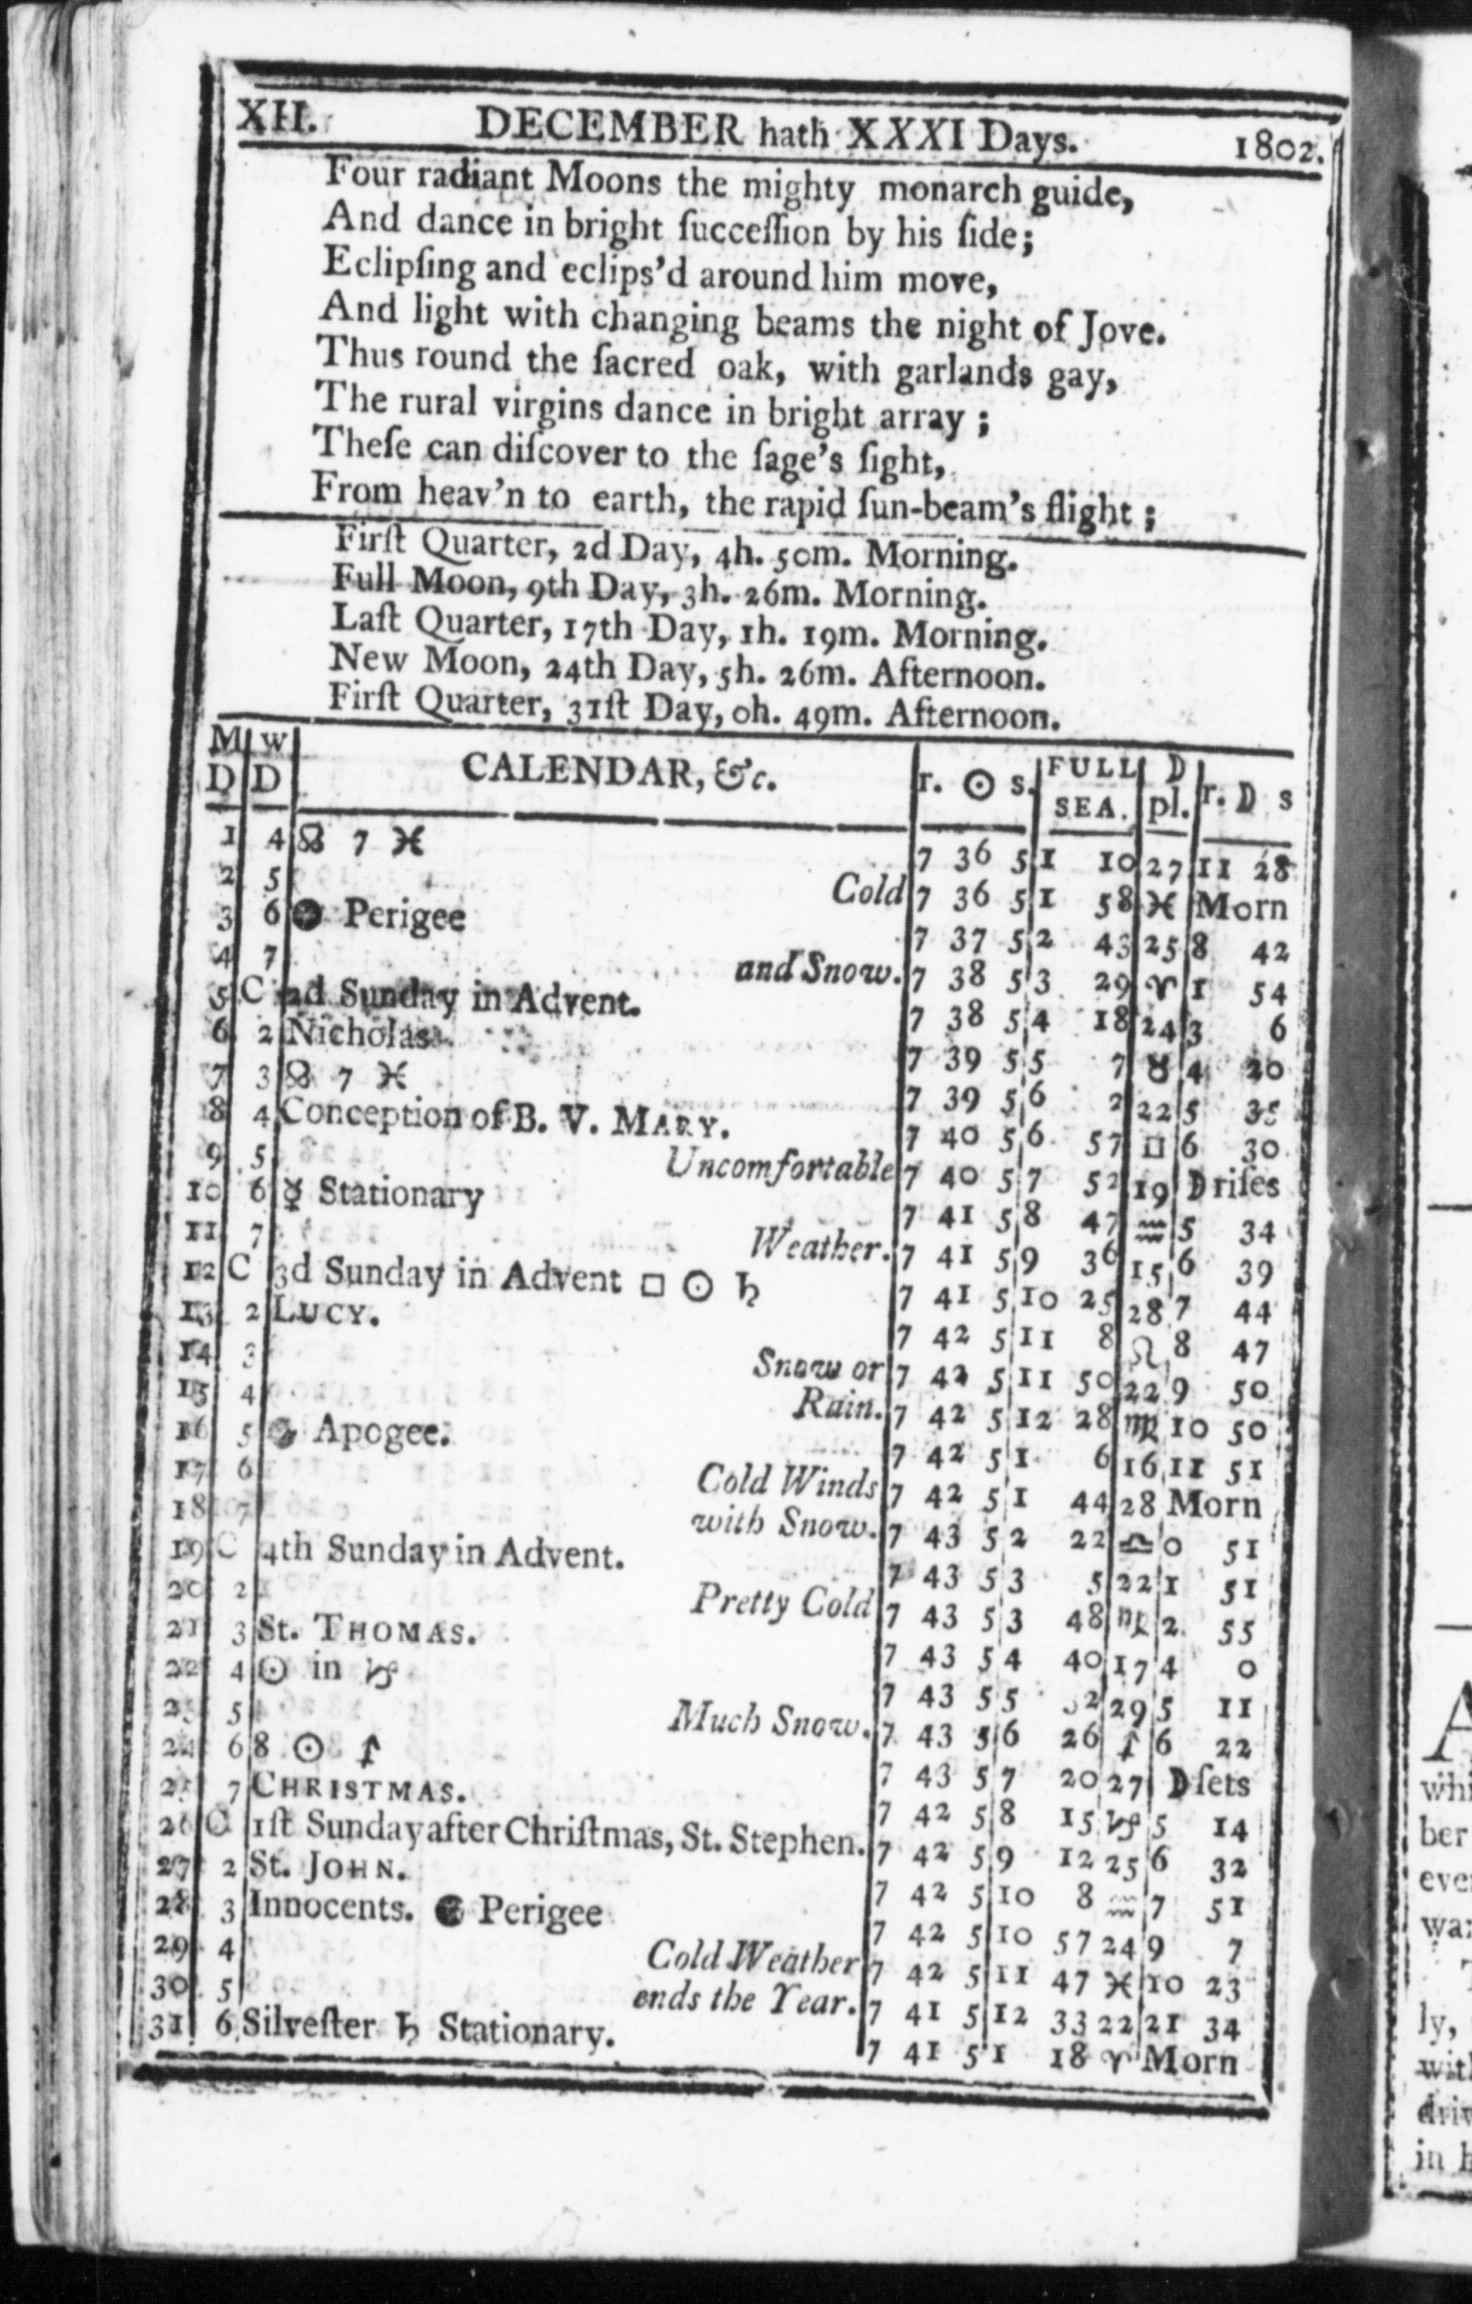 XII. DECEMBER hath XXXI Days. 1802.
Four radiant Moons the mighty monarch guide,
And dance in bright ſucceſſion by his ſide;
Eclipſing and eclips'd around him move,
And light with changing beams the night of Jove.
Thus round the ſacred oak, with garlands gay,
The rural virgins dance in bright array;
Theſe can diſcover to the ſage's ſight,
From heav'n to earth, the rapid ſun-beam's flight;
Firſt Quarter, 2d Day, 4h. 50m. Morning.
Full Moon, 9th Day, 3h. 26m. Morning.
Laſt Quarter, 17th Day, 1h. 19m. Morning.
New Moon, 24th Day, 5h. 26m. Afternoon.
Firſt Quarter, 31ſt Day, 0h. 49m. Afternoon.
M W CALENDAR, &c. r. ☉ s. FULL ☽ r. ☽ s
D D SEA. pl.
1 4 ☊ 7 ♓ 7 36 5 1 10 27 11 28
2 5 Cold 7 36 5 1 58 ♓ Morn
3 6 Perigee 7 37 5 2 43 25 8 42
4 7 and Snow. 7 38 5 3 29 ♈ 1 54
5 C 2d Sunday in Advent. 7 38 5 4 18 24 3 6
6 2 Nicholas 7 39 5 5 7 ♉ 4 20
7 3 ☊ 7 ♓ 7 39 5 6 2 22 5 35
8 4 Conception of B. V. MARY. 7 40 5 6 57 □ 6 30
9 5 Uncomfortable 7 40 5 7 52 19 ☽ riſes
10 6 ☿ Stationary 7 41 5 8 47 ♒ 5 34
11 7 Weather. 7 41 5 9 36 15 6 39
12 C 3d Sunday in Advent □ ☉ ♄ 7 41 5 10 25 28 7 44
13 2 LUCY. 7 42 5 11 8 ♌ 8 47
14 3 Snow or 7 42 5 11 50 22 9 50
15 4 Rain. 7 42 5 12 28 ♍ 10 50
16 5 Apogee. 7 42 5 1 6 16 11 51
17 6 Cold Winds 7 42 5 1 44 28 Morn
18 7 with Snow. 7 43 5 2 22 ♎ 0 51
19 C 4th Sunday in Advent. 7 43 5 3 5 22 1 51
20 2 Pretty Cold 7 43 5 3 48 ♏ 2 55
21 3 St. THOMAS. 7 43 5 4 40 17 4 0
22 4 ☉ in ♑ 7 43 5 5 32 29 5 11
23 5 Much Snow. 7 43 5 6 26 ♐ 6 22
24 6 8 ☉ ♐ 7 43 5 7 20 27 ☽ ſets
25 7 CHRISTMAS. 7 42 5 8 15 ♑ 5 14
26 C 1ſt Sunday after Chriſtmas, St. Stephen. 7 42 5 9 12 25 6 32
27 2 St. JOHN. 7 42 5 10 8 ♒ 7 51
28 3 Innocents. Perigee 7 42 5 10 57 24 9 7
29 4 Cold Weather 7 42 5 11 47 ♓ 10 23
30 5 ends the Year. 7 41 5 12 33 22 21 34
31 6 Silveſter ♄ Stationary. 7 41 5 1 18 ♈ Morn
A
whi
ber
eve
wa
ly,
with
driv
in h